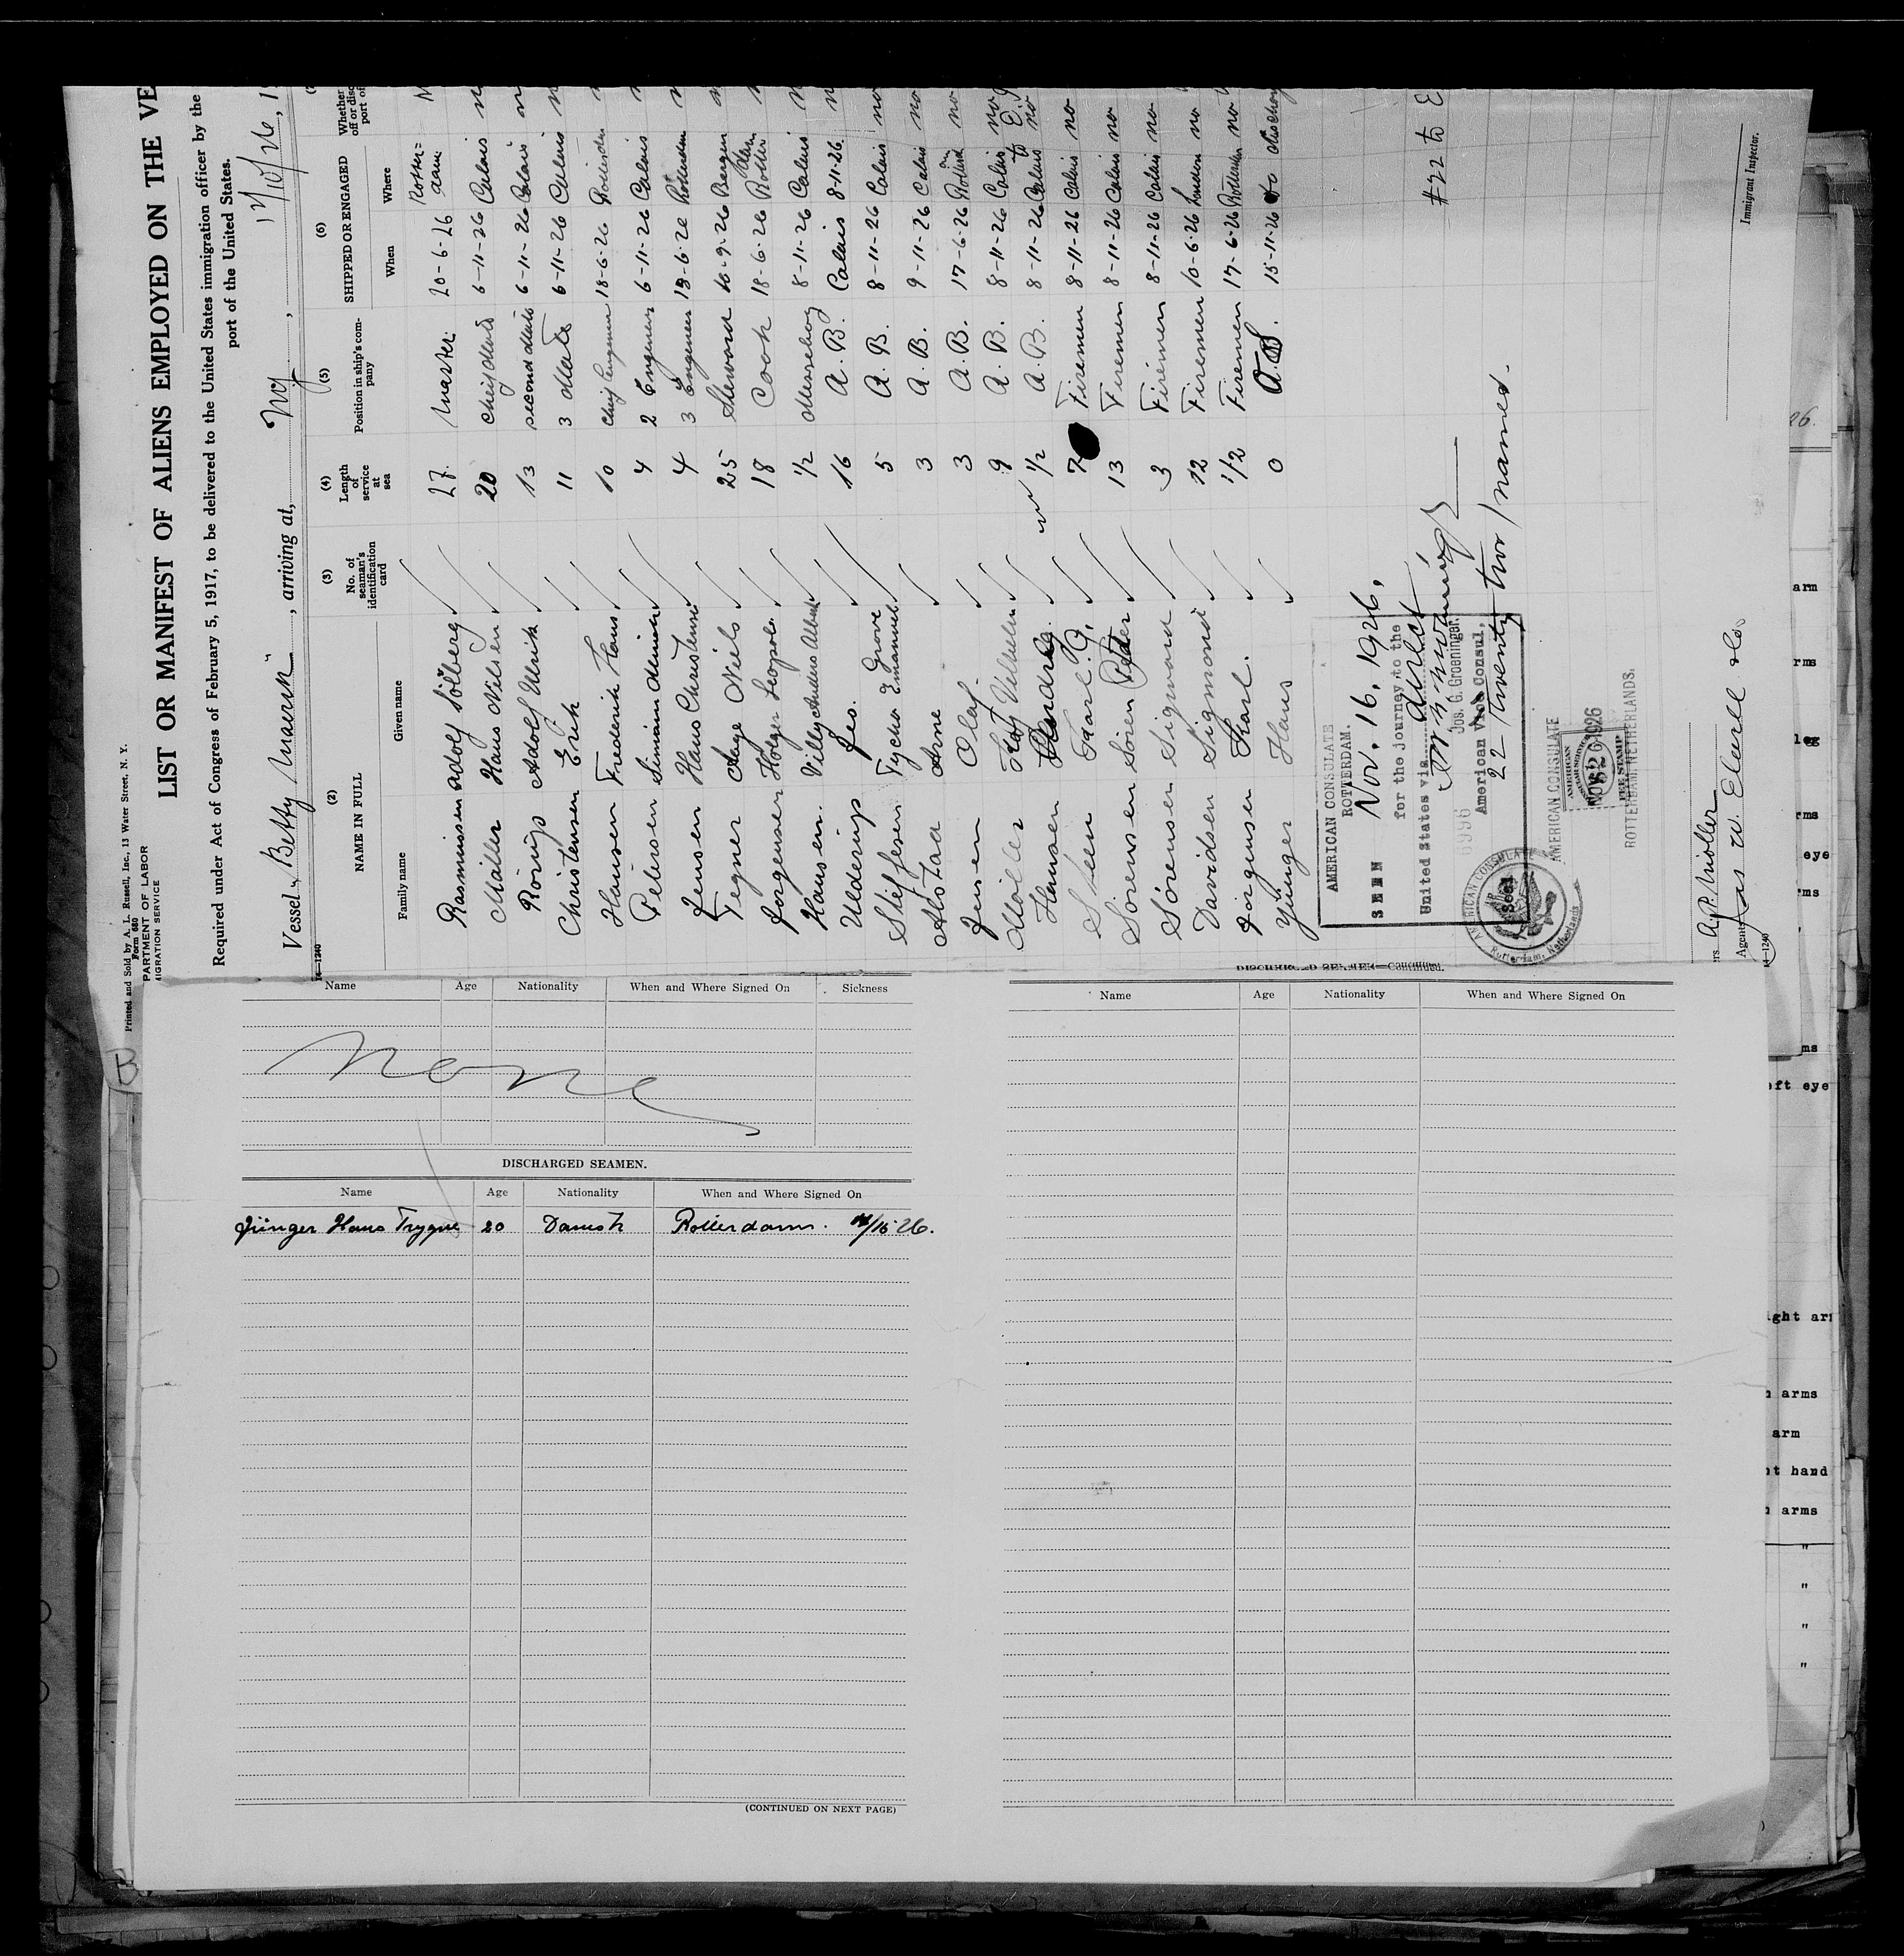 Printed and Sold by A. L. Russell, Inc., 13 Water Street, N. Y.
Form 680
PARTMENT OF LABOR
IGRATION SERVICE
LIST OR MANIFEST OF ALIENS EMPLOYED ON THE VE
Required under Act of Congress of February 5, 1917, to be delivered to the United States immigration officer by the
port of the United States.
Vessel Betty Maersk, arriving at, NY
(2) (3) (4) (5) (6)
NAME IN FULL No. of seaman's identification card Length of service at sea Position in ship's company SHIPPED OR ENGAGED Whether
Family name Given name When Where
Rasmussen Adolf Sölberg 27. Master 20-6-26 Rotterdam
Möller Hans Nilsen 20 Chief Mate 6-11-26 Calais
Rörup Adolf Ulrik 13 second Mate 6-11-26 Calais
Christensen Erik 11 3 Mate 6-11-26 Calais
Hansen Frederik Hans 10 Chief Engineer 18-6-26 Rotterdam
Petersen 4 2 Engeneer 6-11-26 Calais
Jensen Hans Christensen 4 3 Engeneer 18-6-26 Rotterdam
Tegner Aage Niels 25 Steward 10-9-26 Bergen
Jorgensen Holger Leopold. 18 Cook 18-6-26 Rotterdam
Hansen. Villy Albert 1/2 Messeboy 8-11-26 Calais
Ulderup Jes. 16 A. B. Calais 8-11-26.
Steffesen Tycho Emanuel Grove 5 A. B. 8-11-26 Calais no
Alstad Arne 3 A. B. 9-11-26 Calais no
Jensen Olaf. 3 A. B. 17-6-26 Rotterdam no
Möller Vilhelm 9 A. B. 8-11-26 Calais no
Hansen 1/2 A. B. 8-11-26 Calais no
Steen Karl. 7 Firemen 8-11-26 Calais no
Sorensen Sören Peder 13 Firemen 8-11-26 Calais no
Sörensen Sigvard 3 Firemen 8-11-26 Calais no
Davidsen Sigmond 12 Firemen 10-6-26 London no
Jörgensen Karl. 1/2 Firemen 17-6-26 Rotterdam no
Yünger Hans 0 15-11-26
AMERICAN CONSULATE
ROTTERDAM.
SEEN Nov. 16, 1926,
for the journey to the
United States via direct
Jos. G. Groeninger,
American Vice Consul,
22 Twenty two names.
#22 to
AMERICAN CONSULATE
AMERICAN CONSULAR SERVICE
FEE STAMP
ROTTERDAM, NETHERLANDS.
AMERICAN CONSULATE
Rotterdam, Netherlands
A. P. Möller
Agents Jas W. Elwell & Co
14—1240
Immigrant Inspector.
Name Age Nationality When and Where Signed On Sickness
None
DISCHARGED SEAMEN.
Name Age Nationality When and Where Signed On
Jünger Hans Trygve 20 Danish Rotterdam. 11/15 26.
(CONTINUED ON NEXT PAGE)
DISCHARGED SEAMEN—Continued.
Name Age Nationality When and Where Signed On
26.
arm
rms
leg
rms
eye
rms
ms
eft eye
ight arm
arms
arm
ht hand
arms
"
"
"
"